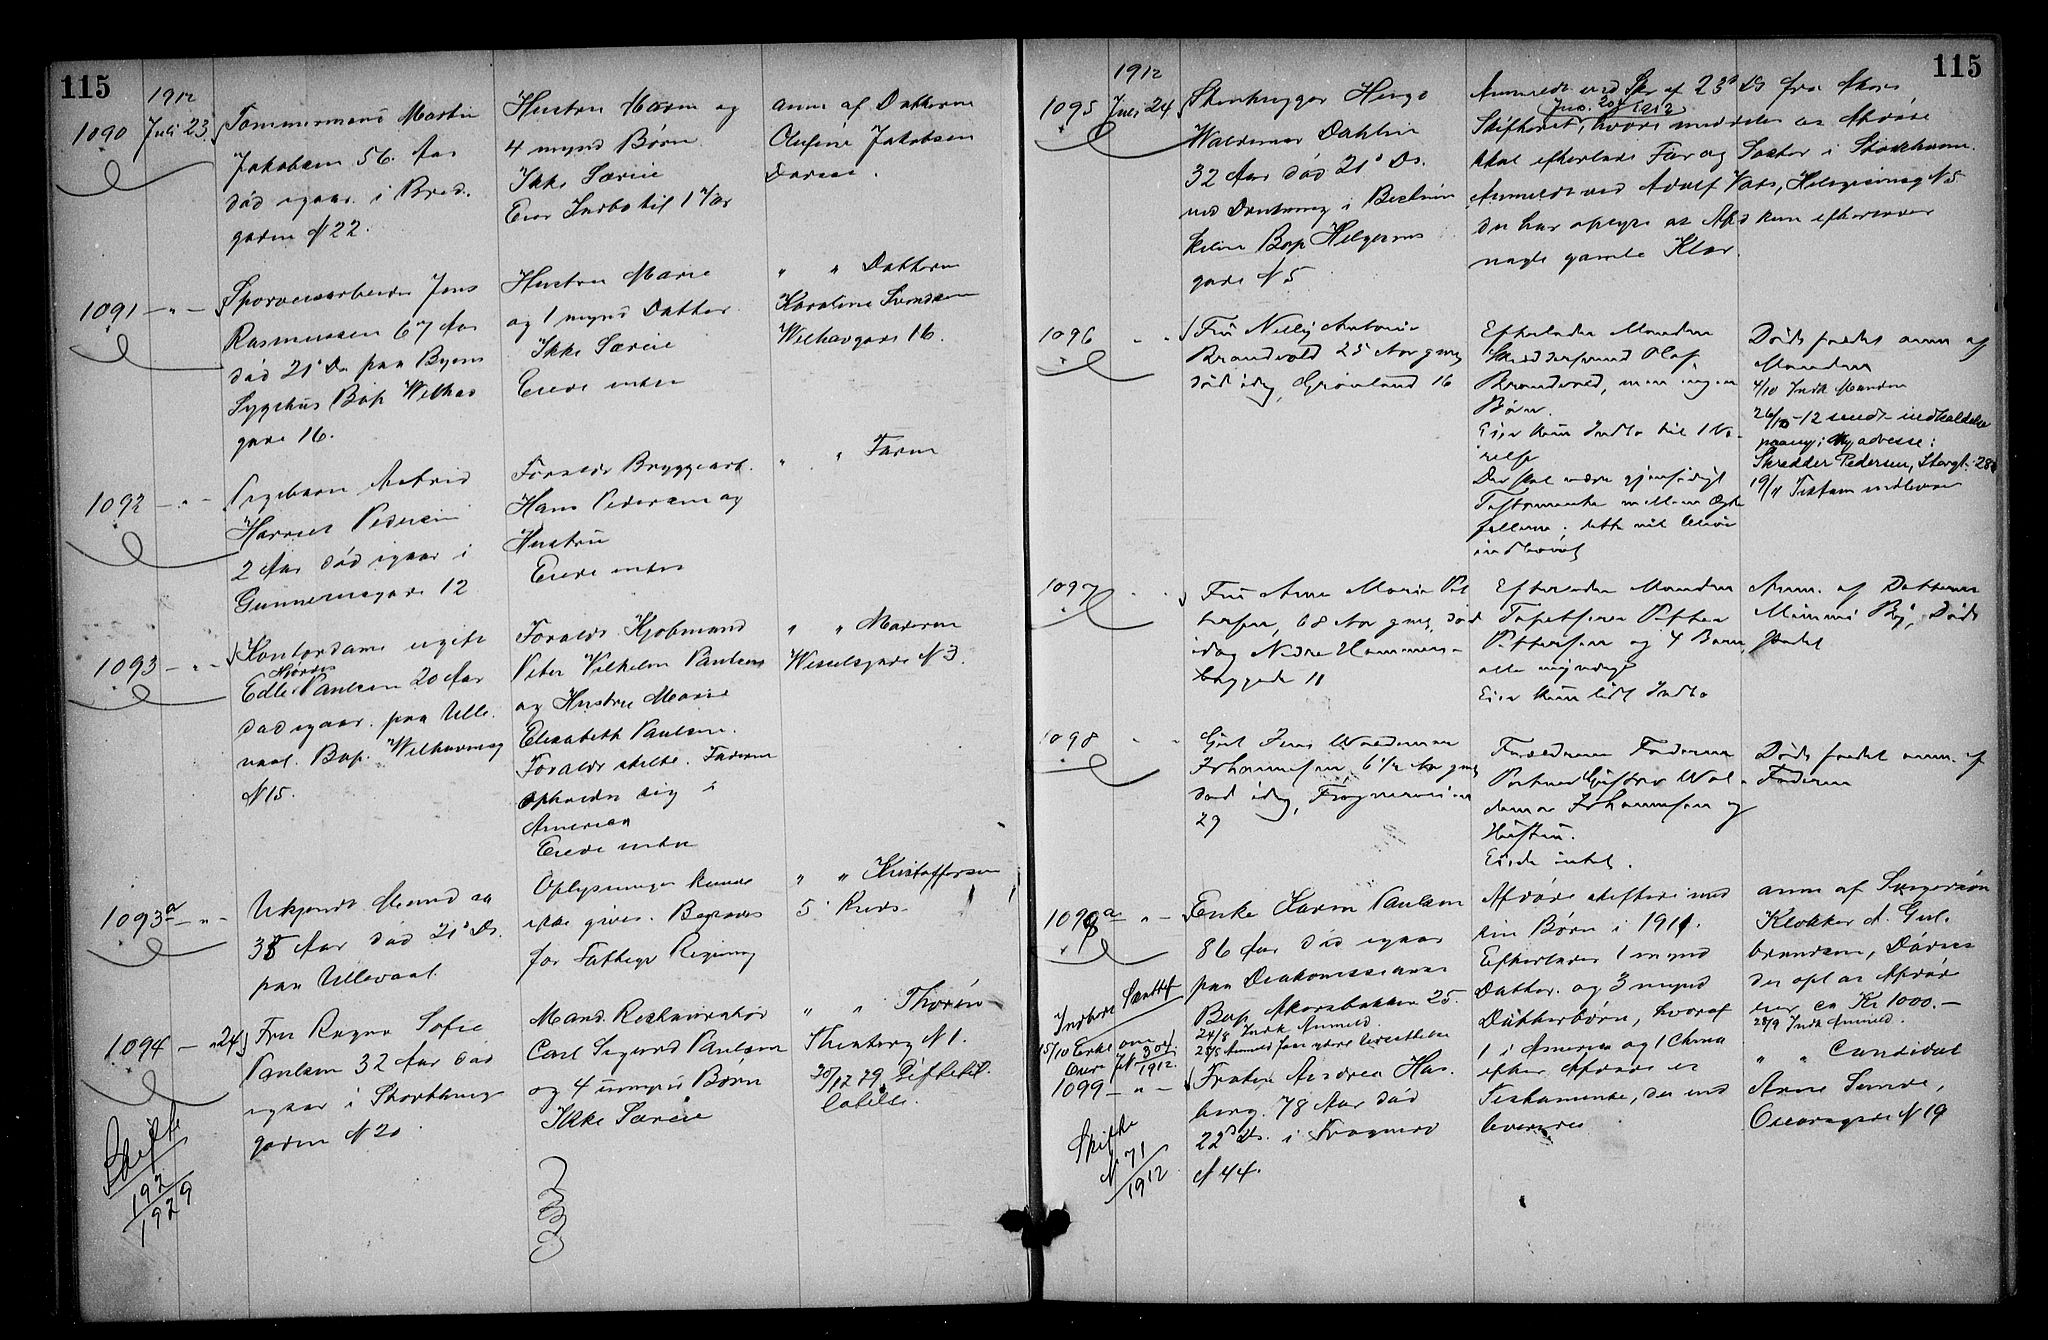 115
1912
1090 Juli 23
Tømmermand Martin
Jakobsen 56 Aar
død igaar i Bred
gaden N 22.
Hustru Maren og
4 mynd Børn
Ikke Særeie
Eier Indbo til 1 Vær
anm af Datteren
Olufine Jakobsen
Daress.
1091 — " —
Sporveisarbeider Jens
Rasmussen 67 Aar
død 21 Ds paa Byens
Sygehus Bop Welhav
gade 16.
Hustru Marie
og 1 mynd Datter.
Ikke Særeie
Eiede intet
" " Datteren
Karoline Svendsen
Welhavgade 16.
1092 — " —
Pigebarn Astrid
Harriet Pedersen
2 Aar død igaar i
Gunnersgade 12
Forældr Bryggearb.
Hans Pedersen og
Hustru
Eiede intet
" " Faren
1093 — " —
Kontordame ugift
Hjørdis
Edle Paulsen 20 Aar
død igaar paa Ulle
vaal. Bop. Welhavnsg
N 15.
Forældr Kjøbmand
Peter Vilhelm Paulsen
og Hustru Marie
Elisabeth Paulsen.
Forældr skilte. Faderen
opholder sig i
Amerika
Eiede intet
" " Moderen
Wesselsgade N 3.
1093a — " —
Ukjendt Mand ca
35 Aar død 21 Ds.
paa Ullevaal.
Oplysninger kunde
ikke gives. Begraves
for Fattigv Regning
" " Kristoffersen
5 Kreds
1094 — " 24
Fru Ragna Sofie
Paulsen 32 Aar død
igaar i Storthings
gaden N 20
Mand. Restauratør
Carl Sigurd Paulsen
og 4 umynd Børn
Ikke Særeie
" " Thorøn
N 1.
Skifte
192
1929
115
1912
1095 Juli 24
Hugo
Waldemar Dahlin
32 Aar død 21 Ds.
ved Drukning i
Bop Helgesens
gade N 5
Anmeldt ved Skr af 23 Ds fra Akers
Skifteret, hvori meddeles at Afdøde
skal efterlade Far og Søster i Stockholm.
Anmeldt ved Adolf Helgesensg N 5
der har opgit at Afd kun efterlader
nogle gamle Klær.
1096 " "
Fru Nelly Antonie
Brandvold 25 Aar gml
død idag, Grønland 16
Efterlader Manden
Skræddersvend Olaf
Brandvold, men ingen
Børn.
Eier kun Indbo til 1 Væ-
relse
Der skal være gjensidigt
Testamente mellem Ægte
fællerne; dette vil blive
indleveret
Døds faldet anm af
Manden
4/10 Indk Manden
26/10-12 sendt indkaldelse
paany; Ny adresse:
Skrædder Pedersen, Storgt. 28
19/11 Testam indlevert
1097 " "
Fru Anne Marie Pet
tersen, 68 Aar gml, død
idag Nedre Hammers-
borggade 11
Efterlader Manden
Tapetserer Petter
Pettersen og 4 Børn,
alle myndige
Eier kun lidt Indbo
Anm. af Datteren
Mimmi Døds
faldet
1098 " "
Gut Jens Waldemar
Johannesen, 6 1/2 Aar gml
død idag, Frognerveien
29
Forældrene Faderen
Gustav Wal-
demar Johannesen og
Hustru.
Eiede intet.
Døds faldet anm. af
Faderen
1098a — " —
Enke Karen Paulsen
86 Aar død igaar
paa Diakonissians
Bop Akersbakken 25.
24/8 Indk Anmeld.
Afdøde skiftede med
sin Børn i 1911.
Efterlader 1 mynd
Datter og 3 mynd
Datterbørn, hvoraf
1 i Amerika og 1 China
efter Afdøde er
Testamente, der ind
leveres
anm af Svigersøn
Klokker A. Gul-
brandsen, Daress
der opl at Afdøde
eier ca Kr 1000.—
28/9 Indk Anmeld.
N 304
1912.
1099 — " —
Frøken Andrea Has
berg. 78 Aar død
22 Ds. i Frognerv
N 44.
" " Candidat
Arne
Oscarsgade N 19
Skifte
N 71
1912